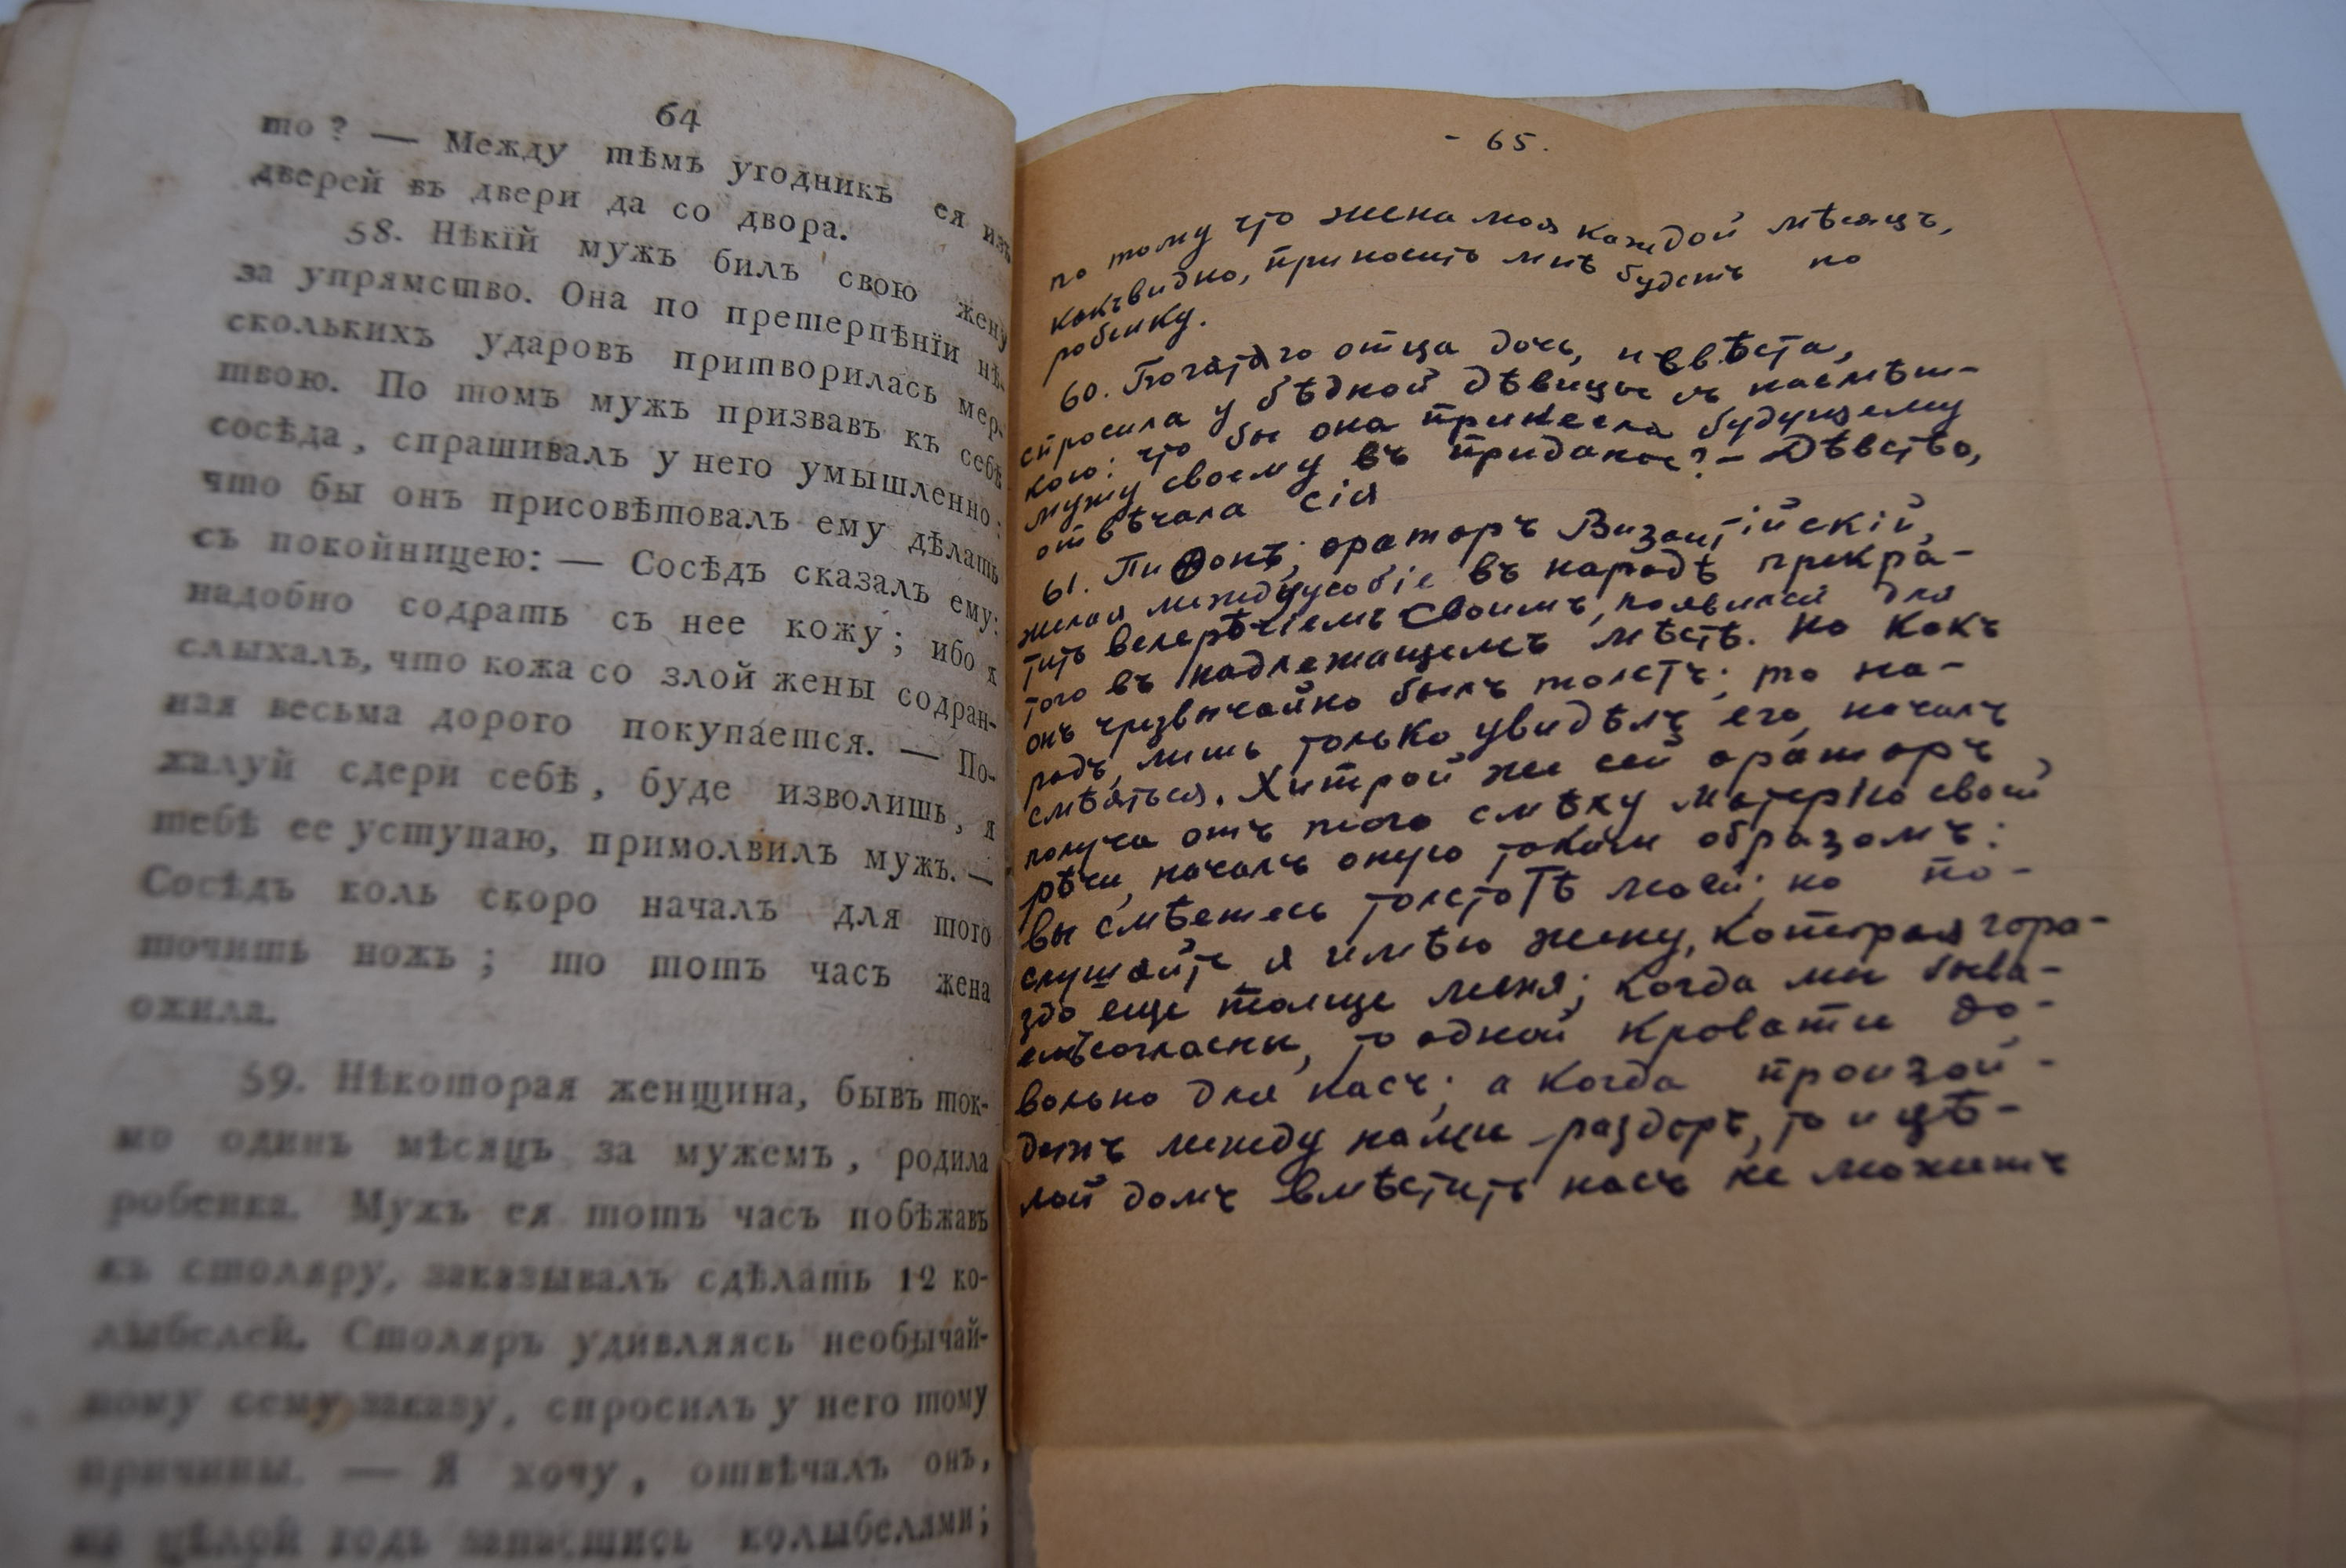 64
то? — Между тѣмъ угодникъ ея изъ
дверей въ двери да со двора.
58. Нѣкїй мужъ билъ свою жену
за упрямство. Она по претерпѣнїи нѣ-
сколькихъ ударовъ притворилась мер-
твою. По томъ мужъ призвавъ къ себѣ
сосѣда, спрашивалъ у него умышленно:
что бы онъ присовѣтовалъ ему дѣлать
съ покойницею: — Сосѣдъ сказалъ ему:
надобно содрать съ нее кожу; ибо я
слыхалъ, что кожа со злой жены содран-
ная весьма дорого покупается. — По-
жалуй сдери себѣ, буде изволишь, я
тебѣ ее уступаю, примолвилъ мужъ. —
Сосѣдъ коль скоро началъ для того
точить ножъ; то тотъ часъ жена
ожила.
59. Нѣкоторая женщина, бывъ ток-
мо одинъ мѣсяцъ за мужемъ, родила
робенка. Мужъ ея тотъ часъ побѣжавъ
къ столяру, заказывалъ сдѣлать 12 ко-
лыбелей. Столяръ удивляясь необычай-
ному сему заказу, спросилъ у него тому
причины. — Я хочу, отвѣчалъ онъ,
на цѣлой годъ запастись колыбелями;
- 65.
по тому что жена моя каждой мѣсяцъ,
какъ видно, приносить мнѣ будетъ по
робенку.
60. Богатаго отца дочь, невѣста,
спросила у бѣдной дѣвицы съ насмѣш-
кою: что бы она принесла будущему
мужу своему въ приданое? - Дѣвство,
отвѣчала сія
61. Пиѳонъ, ораторъ Византійскій,
желая междуусобіе въ народѣ прекра-
тить велерѣчіемъ своимъ, появился для
того въ надлежащемъ мѣстѣ. Но какъ
онъ чрезвычайно былъ толстъ; то на-
родъ, лишь только увидѣлъ его, началъ
смѣяться. Хитрой же сей ораторъ,
получа отъ того смѣху матерію своей
рѣчи, началъ оную такимъ образомъ:
вы смѣетесь толстотѣ моей; но по-
слушайте я имѣю жену, которая гора-
здо еще толще меня; когда мы быва-
емъ согласны, то одной кровати до-
вольно для насъ; а когда произой-
детъ между нами раздоръ, то и цѣ-
лой домъ вмѣстить насъ не можетъ